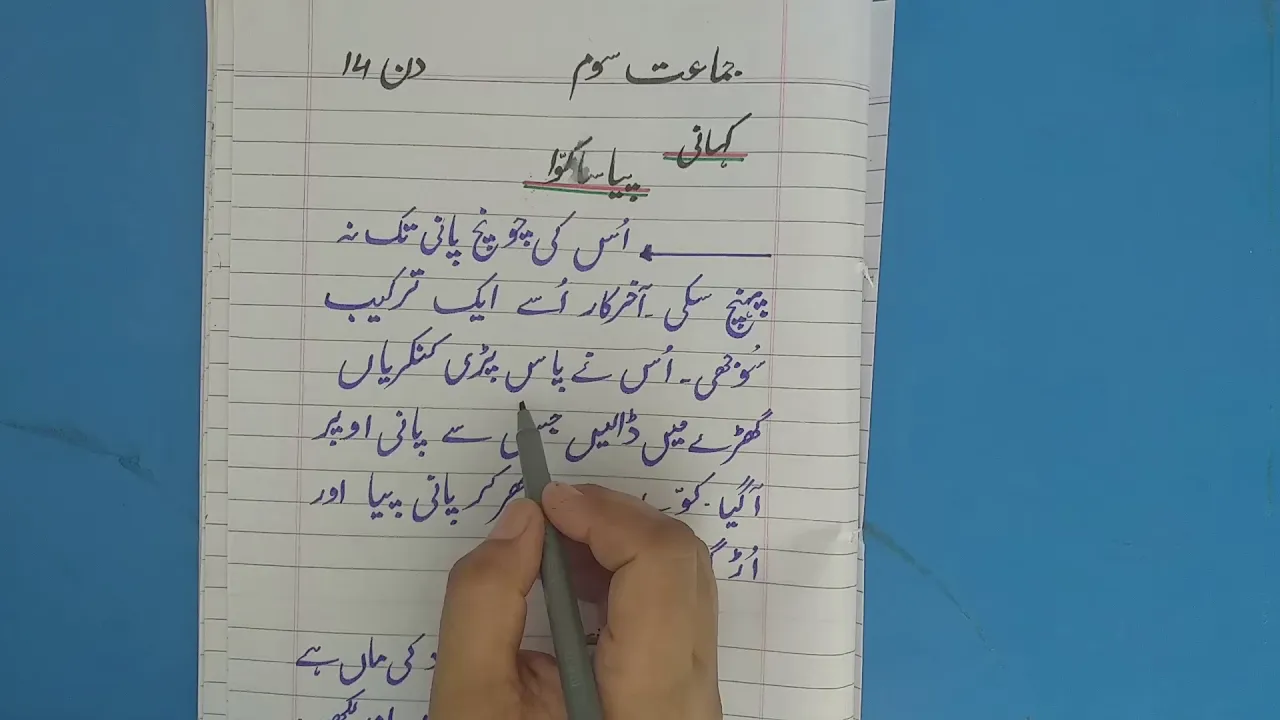 جماعت سوم دن 14
کہانی
پیاسا کوّا
اُس کی چونچ پانی تک نہ
پہنچ سکی ۔ آخرکار اُسے ایک ترکیب
سُوجھی ۔ اُس نے پاس پڑی کنکریاں
گھڑے میں ڈالیں جس سے پانی اوپر
آگیا ۔ بھر کر پانی پیا اور
اُڑ
کی ماں ہے